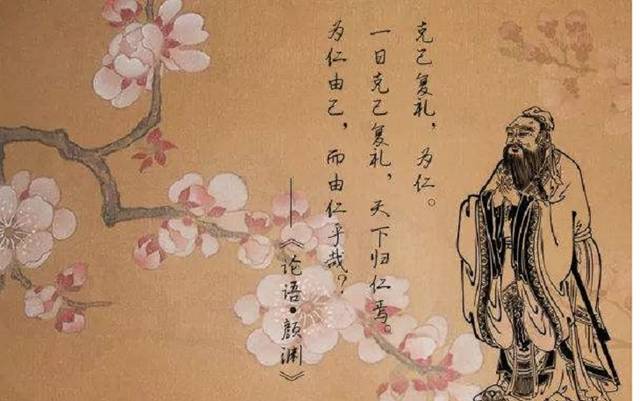 克己复礼，为仁。
一日克己复礼，天下归仁焉。
为仁由己，而由仁乎哉？
——《论语•颜渊》